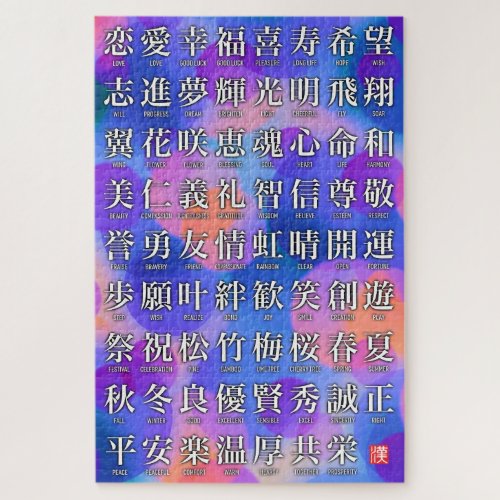 恋 愛 幸 福 喜 寿 希 望
LOVE LOVE GOOD LUCK GOOD LUCK PLEASURE LONG LIFE HOPE WISH
志 進 夢 輝 光 明 飛 翔
WILL PROGRESS DREAM BRIGHTEN LIGHT CHEERFUL FLY SOAR
翼 花 咲 恵 魂 心 命 和
WING FLOWER FLOWER BLESSING SOUL HEART LIFE HARMONY
美 仁 義 礼 智 信 尊 敬
BEAUTY COMPASSION GRATITUDE WISDOM BELIEVE ESTEEM RESPECT
誉 勇 友 情 虹 晴 開 運
PRAISE BRAVERY FRIEND COMPASSIONATE RAINBOW CLEAR OPEN FORTUNE
歩 願 叶 絆 歓 笑 創 遊
STEP WISH REALIZE BOND JOY SMILE CREATION PLAY
祭 祝 松 竹 梅 桜 春 夏
FESTIVAL CELEBRATION PINE BAMBOO UME TREE CHERRY TREE SPRING SUMMER
秋 冬 良 優 賢 秀 誠 正
FALL WINTER GOOD EXCELLENT SENSIBLE EXCEL SINCERITY RIGHT
平 安 楽 温 厚 共 栄 漢
PEACE PEACEFUL COMFORT WARM HEARTY TOGETHER PROSPERITY